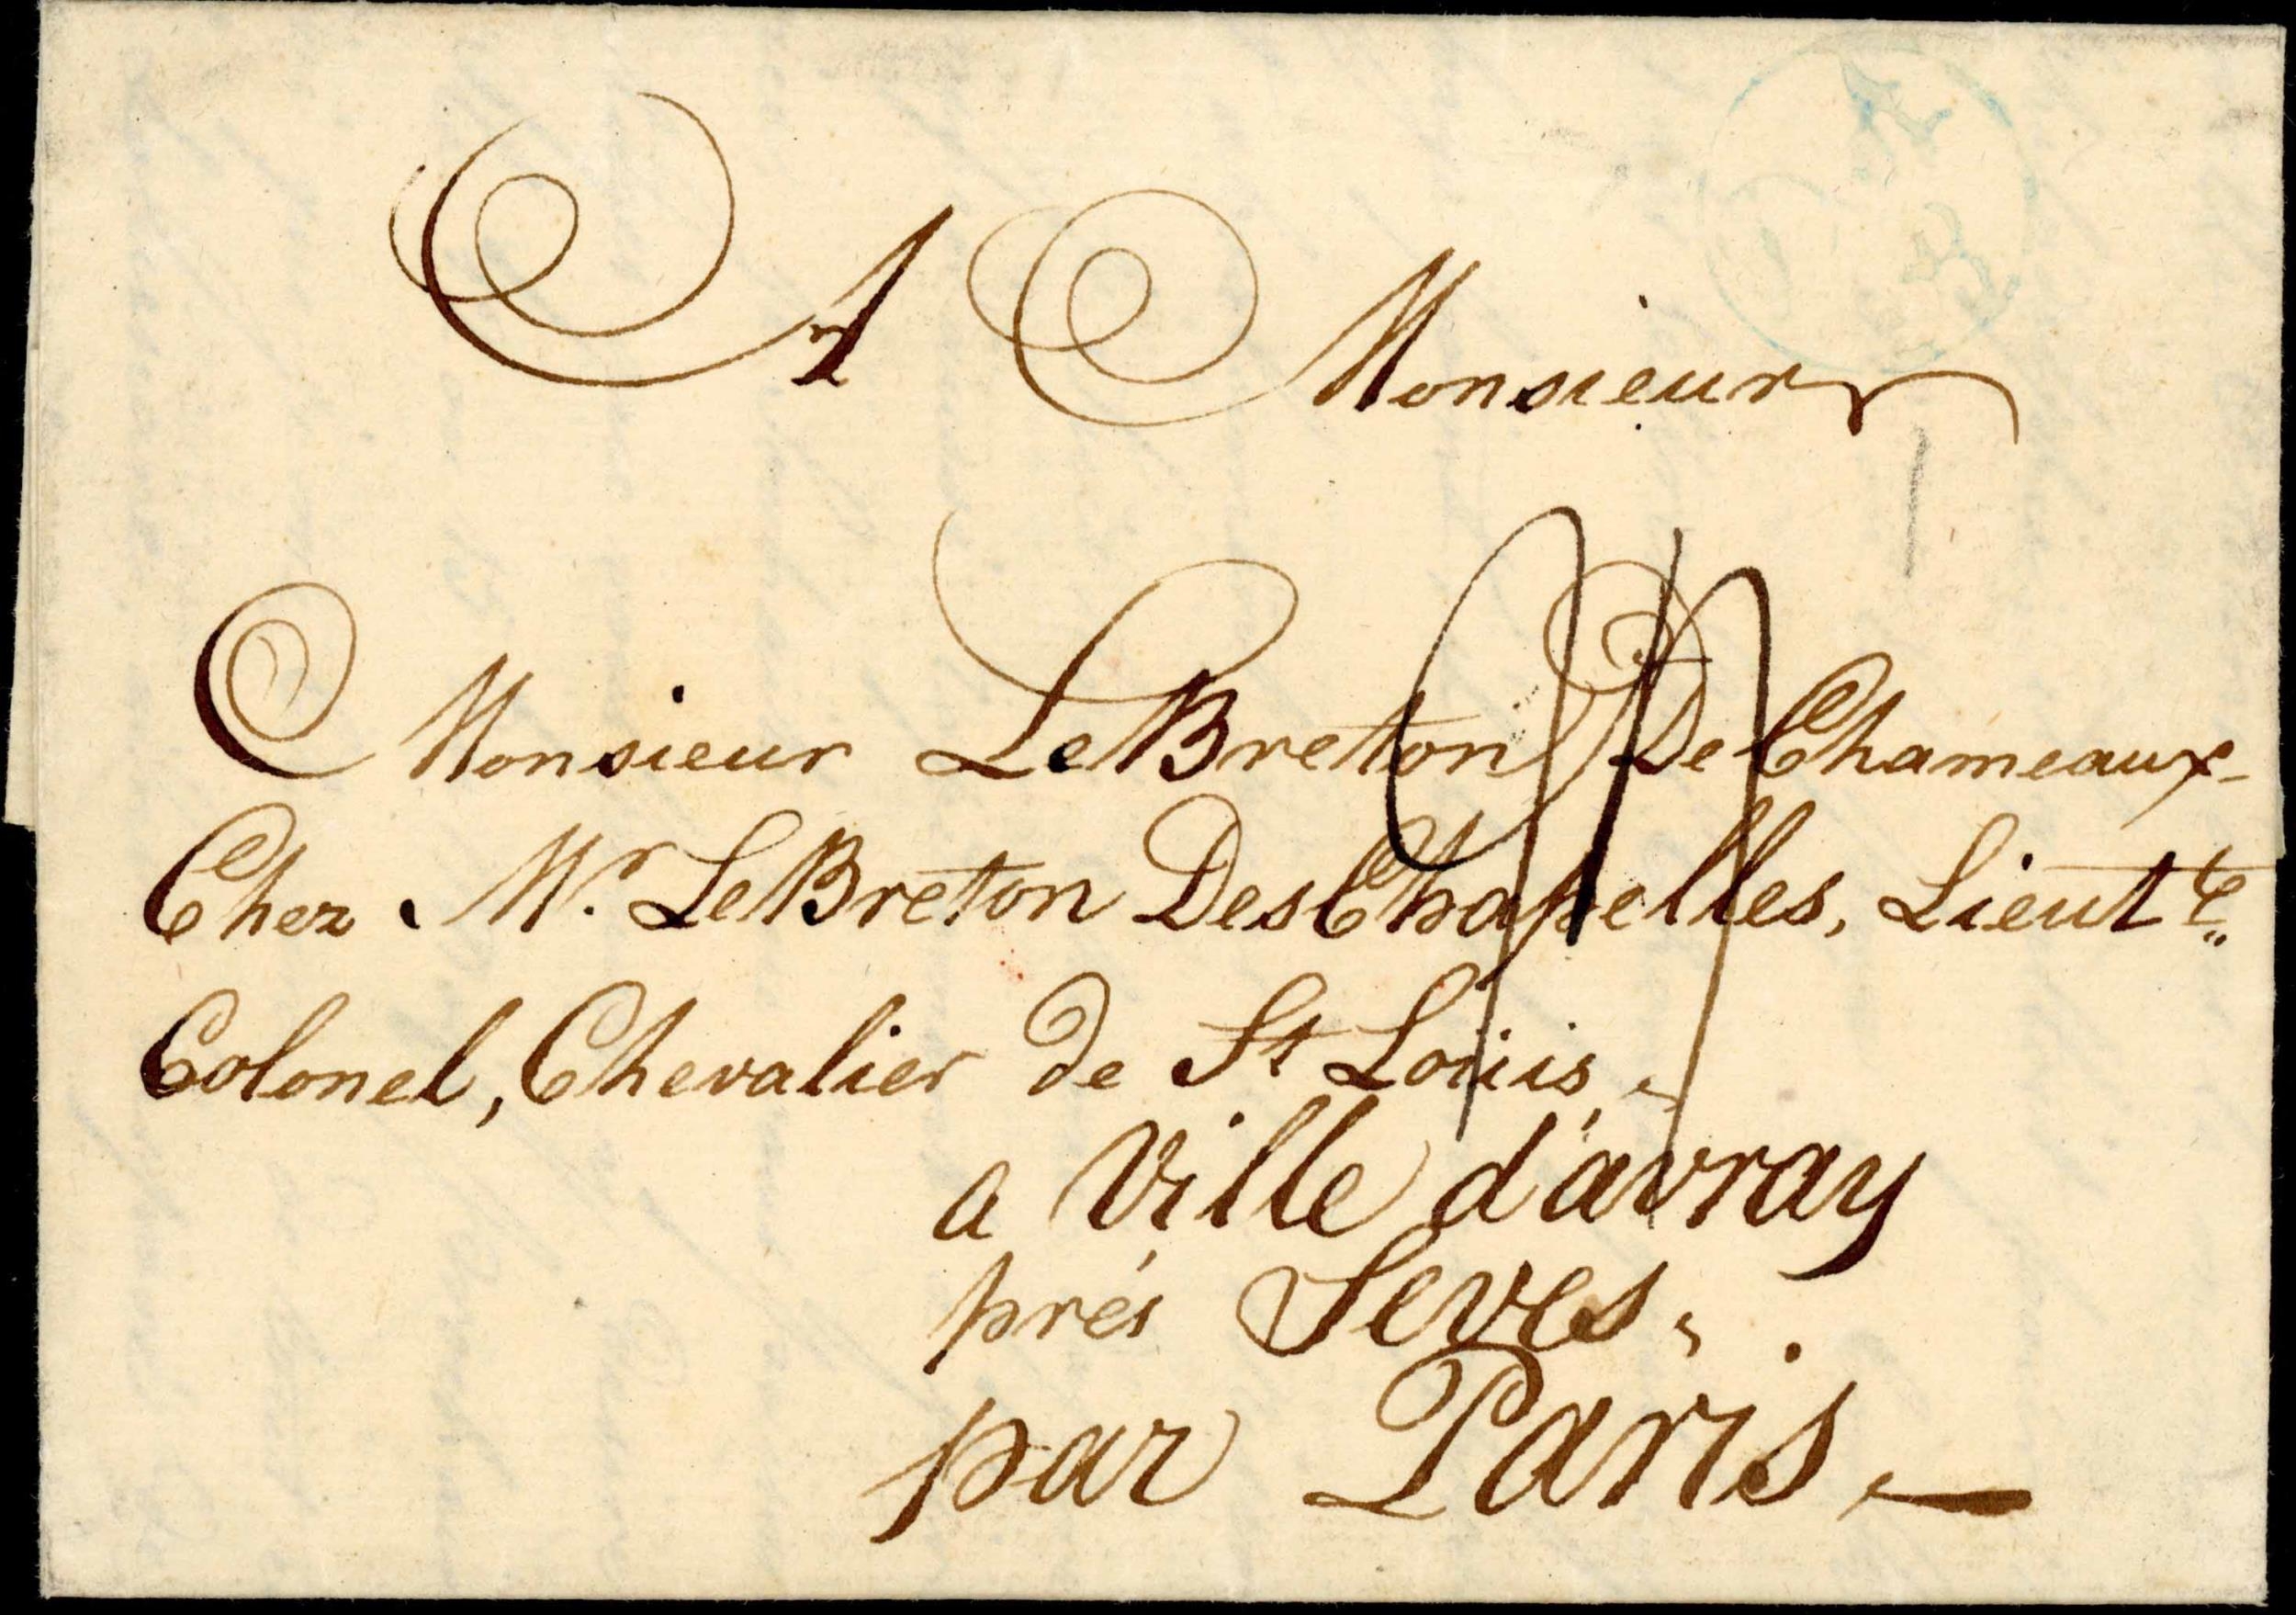 A Monsieur
Monsieur LeBreton De Chameaux
Chez Mr. LeBreton DesChapelles, Lieutt.
Colonel, Chevalier de St Loüis,
a Ville d'avray
prés Seves,
par Paris